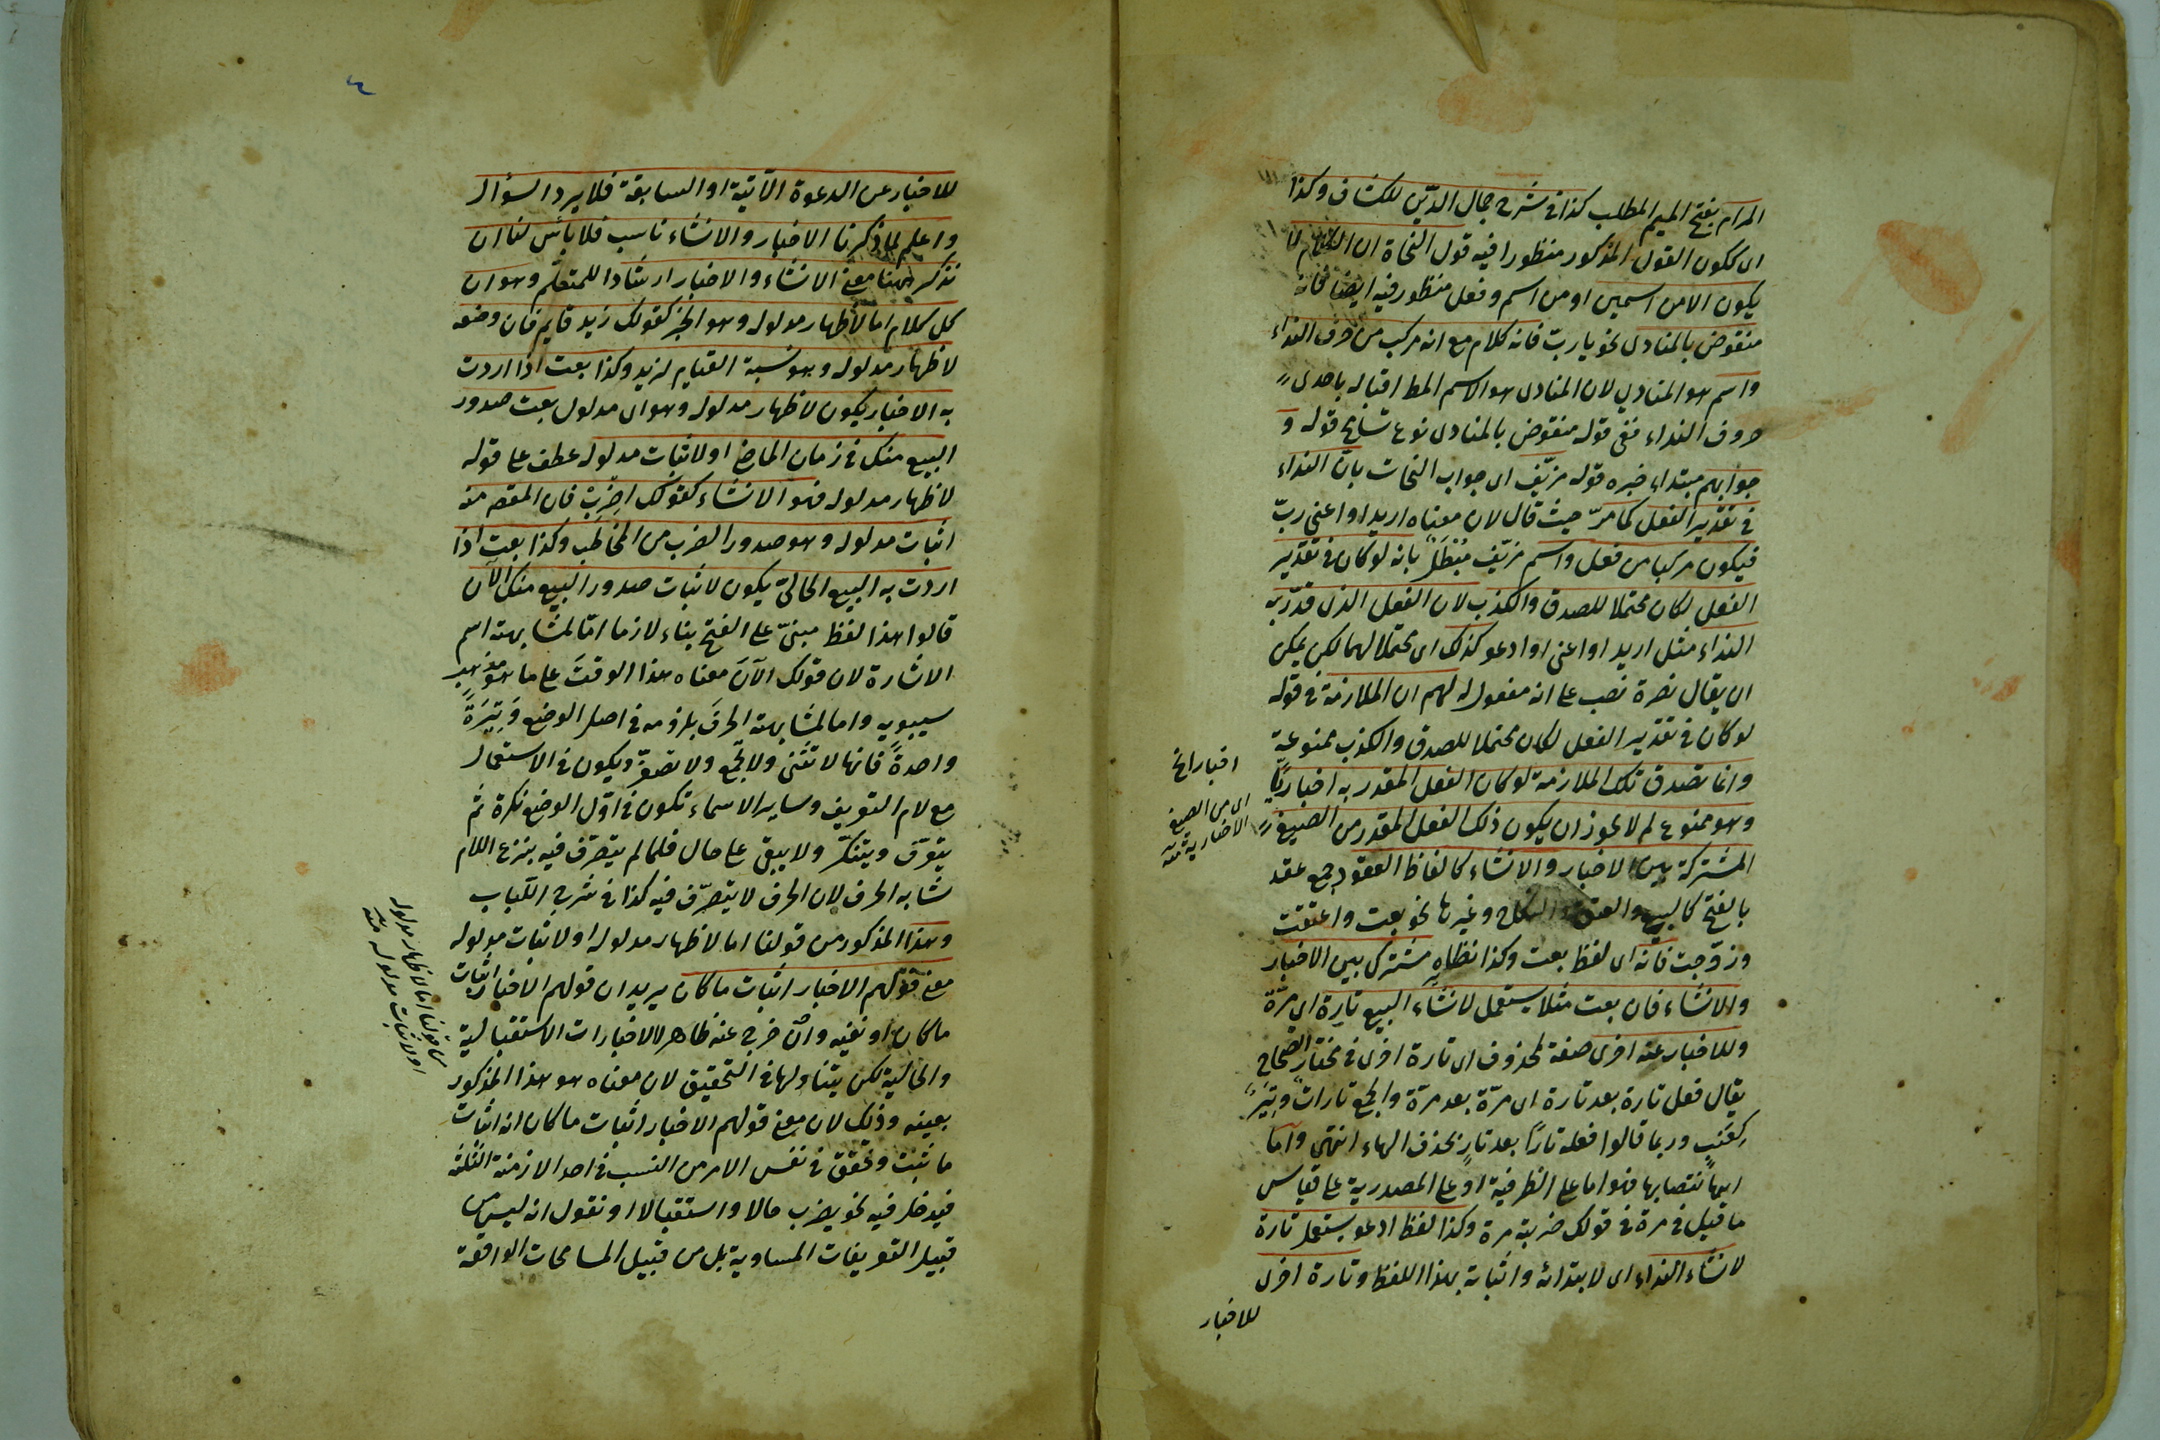 المرام بفتح الميم المطلب كذا فى شرح جمال الدّين للكشاف وكذا
اى ككون القول المذكور منظورا فيه قول النحاة ان الكلام لا
يكون الا من اسمين او من اسم وفعل منظور فيه ايضا فانه
منقوض بالمنادى نحو يا ربّ فانه كلام مع انه مركب من حرف النداء
واسم هو المنادى لان المنادى هو الاسم المط اقباله باحدى
حروف النداء ففى قوله منقوض بالمنادى نوع تسامح قوله و
جوابهم مبتداء خبره قوله مزيّف اى جواب النحات بانّ النداء
فى تقدير الفعل كما مرّ حيث قال لان معناه اريد او اعنى ربّ
فيكون مركبا من فعل واسم مزيّف بانه لو كان فى تقدير
الفعل لكان محتملا للصدق والكذب لان الفعل الذى قدّر به
النداء مثل اريد او اعنى او ادعو كذلك اى محتملا لهما لكن يمكن
ان يقال نصرة نصب على انه مفعول له لهم ان الملازمة فى قوله
لو كان فى تقدير الفعل لكان محتملا للصدق والكذب ممنوعة
وانما تصدق تلك الملازمة لو كان الفعل المقدر به اخباريًّا
وهو ممنوع لم لا يجوز ان يكون ذلك الفعل المقدر من الصيغ
المشتركة بين الاخبار والانشاء كالفاظ العقود جمع عقد
بالفتح كالبيع والعتق والنكاح وغيرها نحو بعت واعتقت
وزوّجت فانه اى لفظ بعت وكذا نظائره مشترك بين الاخبار
والانشاء فان بعت مثلا يستعمل لانشاء البيع تارة اى مرّة
وللاخبار عنه اخرى صفة لمحذوف اى تارة اخرى فى مختار الصّحاح
يقال فعل تارة بعد تارة اى مرّة بعد مرّة والجمع تارات وتِيَرٌ
كعِنَبٍ وربما قالوا فعله تارًا بعد تارٍ بحذف الهاء انتهى واما
انتصابها فهو اما على الظرفية او على المصدرية على قياس
ما قيل فى مرة فى قولك ضربته مرة وكذا لفظ ادعو يستعمل تارة
لانشاء النداء اى لابتدائه واثباته بهذا اللفظ وتارة اخرى
للاخبار
اخبار الخ
اى من الصيغ
الاخبارية منه
٤
للاخبار عن الدعوة الآتية او السابقة فلا يرد السؤال
واعلم لما ذكرنا الاخبار والانشاء ناسب فلا بأس لنا ان
نذكر ههنا معنى الانشاء والاخبار ارشادا للمتعلم وهو ان
كل كلام اما لاظهار مدلوله وهو الخبر كقولك زيد قايم فان وضعه
لاظهار مدلوله وهو نسبة القيام لزيد وكذا بعت اذا اردت
به الاخبار يكون لاظهار مدلوله وهو اى مدلول بعت صدور
البيع منك فى زمان الماضى او لاثبات مدلوله عطف على قوله
لاظهار مدلوله فهو الانشاء كقولك اضرب فان المقصد منه
اثبات مدلوله وهو صدور الضرب من المخاطَب وكذا بعت اذا
اردت به البيع الحالىّ يكون لاثبات صدور البيع منك الآن
قالوا هذا لفظ مبنىّ على الفتح بناء لازما امّا لمشابهته اسم
الاشارة لان قولك الآنَ معناه هذا الوقتَ على ما هو مذهب
سيبويه واما لمشابهته الحرفَ بلزومه فى اصل الوضع وَتِيرَةً
واحدةً فانها لا تثنى ولا تجمع ولا تصغّر ويكون فى الاستعمال
مع لام التعريف وساير الاسماء تكون فى اوّل الوضع نكرة ثم
يتعرّف ويتنكّر ولا يبقى على حال فلما لم يتصرّف فيه بنزع اللام
شابه الحرف لان الحرف لا يتصرّف فيه كذا فى شرح اللُّباب
وهذا المذكور من قولنا اما لاظهار مدلوله او لاثبات مدلوله
معنى قولهم الاخبار اثبات ما كان يريد ان قولهم الاخبار اثبات
ما كان او نفيه وان خرج عنه ظاهرا الاخبارات الاستقبالية
والحالية لكن يتناولها فى التحقيق لان معناه هو هذا المذكور
بعينه وذلك لان معنى قولهم الاخبار اثبات ما كان انه اثبات
ما ثبت وتحقق فى نفس الامر من النسب فى احد الازمنة الثلثة
فيدخل فيه نحو يضرب حالا واستقبالا او نقول انه ليس من
قبيل التعريفات المساوية بل من قبيل المسامحات الواقعة
من قولنا اما لاظهار مدلوله
او لاثبات مدلوله منه